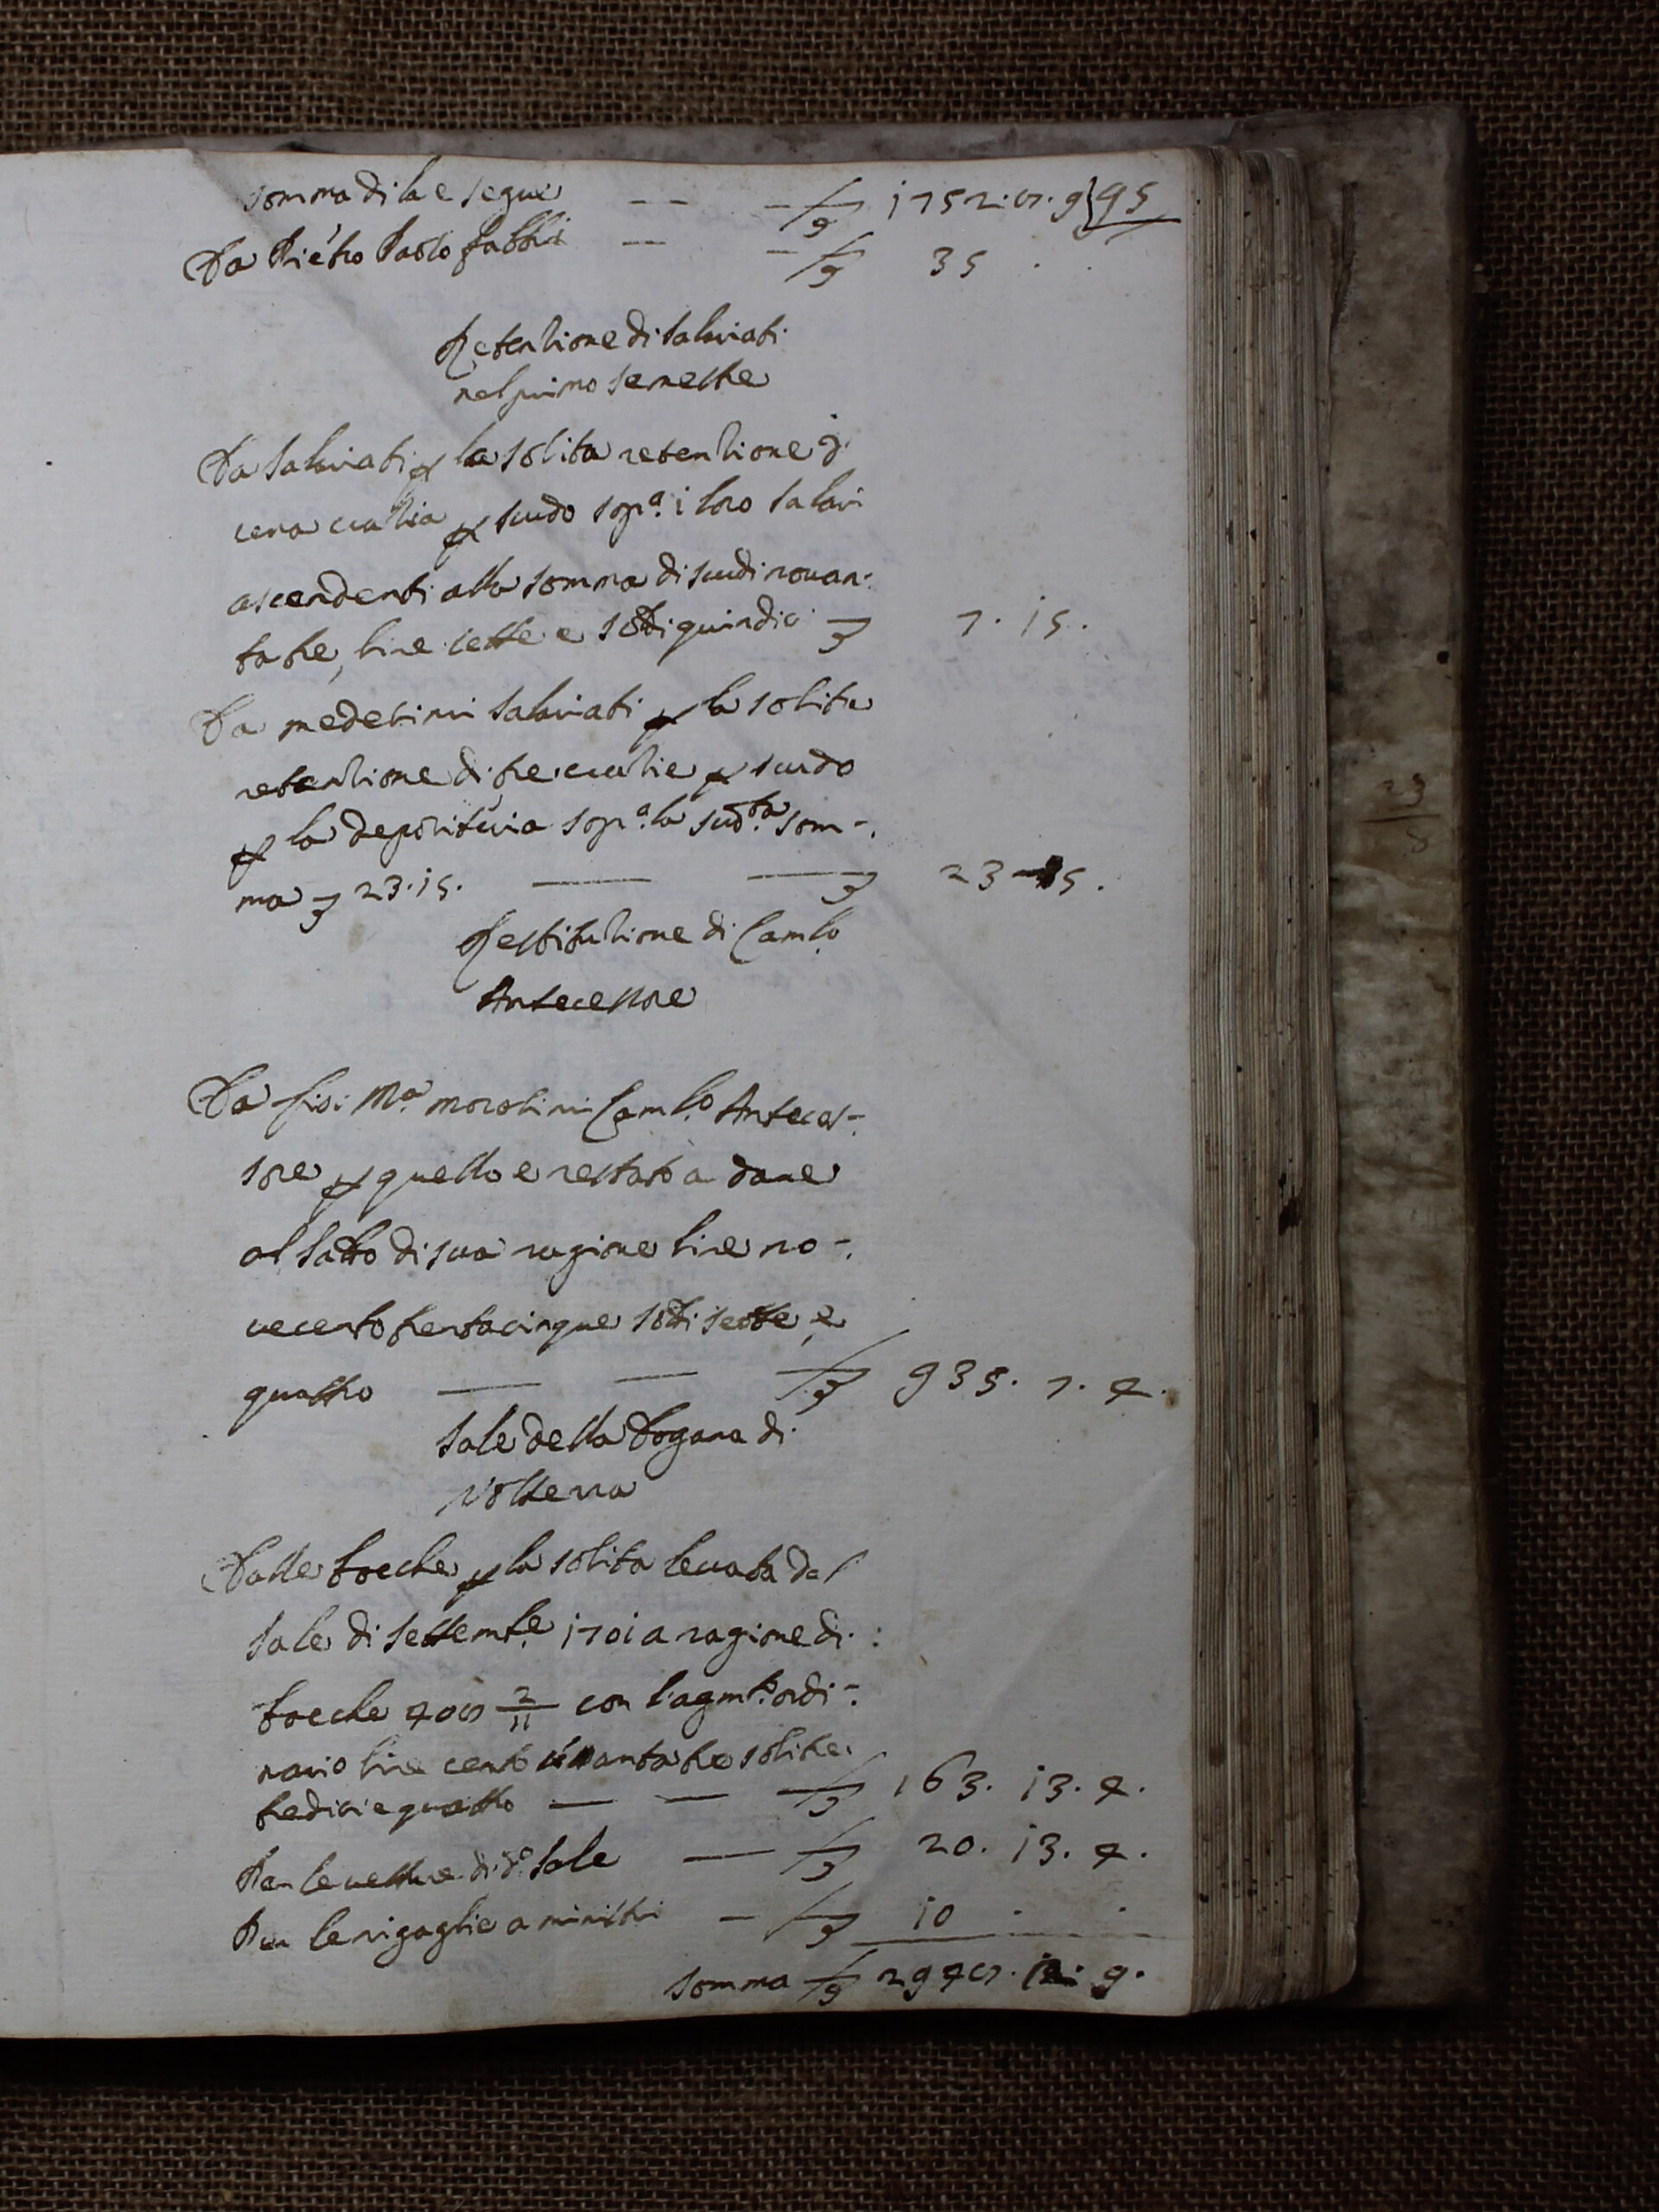 somma di la e segue — — £ 1752. 8. 9 95
Da Pietro Paolo Fabbri — — £ 35 . .
Retentione di Salariati
nel primo semestre
Da Salariati p la solita retentione d'
una crazia p scudo sop.a i loro salari
ascendenti alla somma di scudi novan-
tatre, lire sette e soldi quindici £ 7. 15.
Da medesimi salariati p la solita
retentione di tre crazie p scudo
p la depositeria sop.a la sud.ta som-
ma £ 23. 15. — — £ 23 - 15.
Restitutione di Cam.lo
Antecessore
Da Gio: M.a morosini Cam.lo Anteces-
sore p quello e restato a dare
al saldo di sua ragione lire no-
vecento trentacinque soldi sette e
quattro — — £ 935. 7. 4.
Sale della Dogana di
Volterra
Dalle bocche p la solita levata del
sale di settemb.e 1701 a ragione di
bocche 408 2/11 con l'agm.to ordi-
nario lire cento tre soldi
tredici e quattro — — £ 163. 13. 4.
Per le vetture di d.o sale — £ 20. 13. 4.
Per le rigaglie a ministri — £ 10 . .
somma £ 2948. 9.
23
8